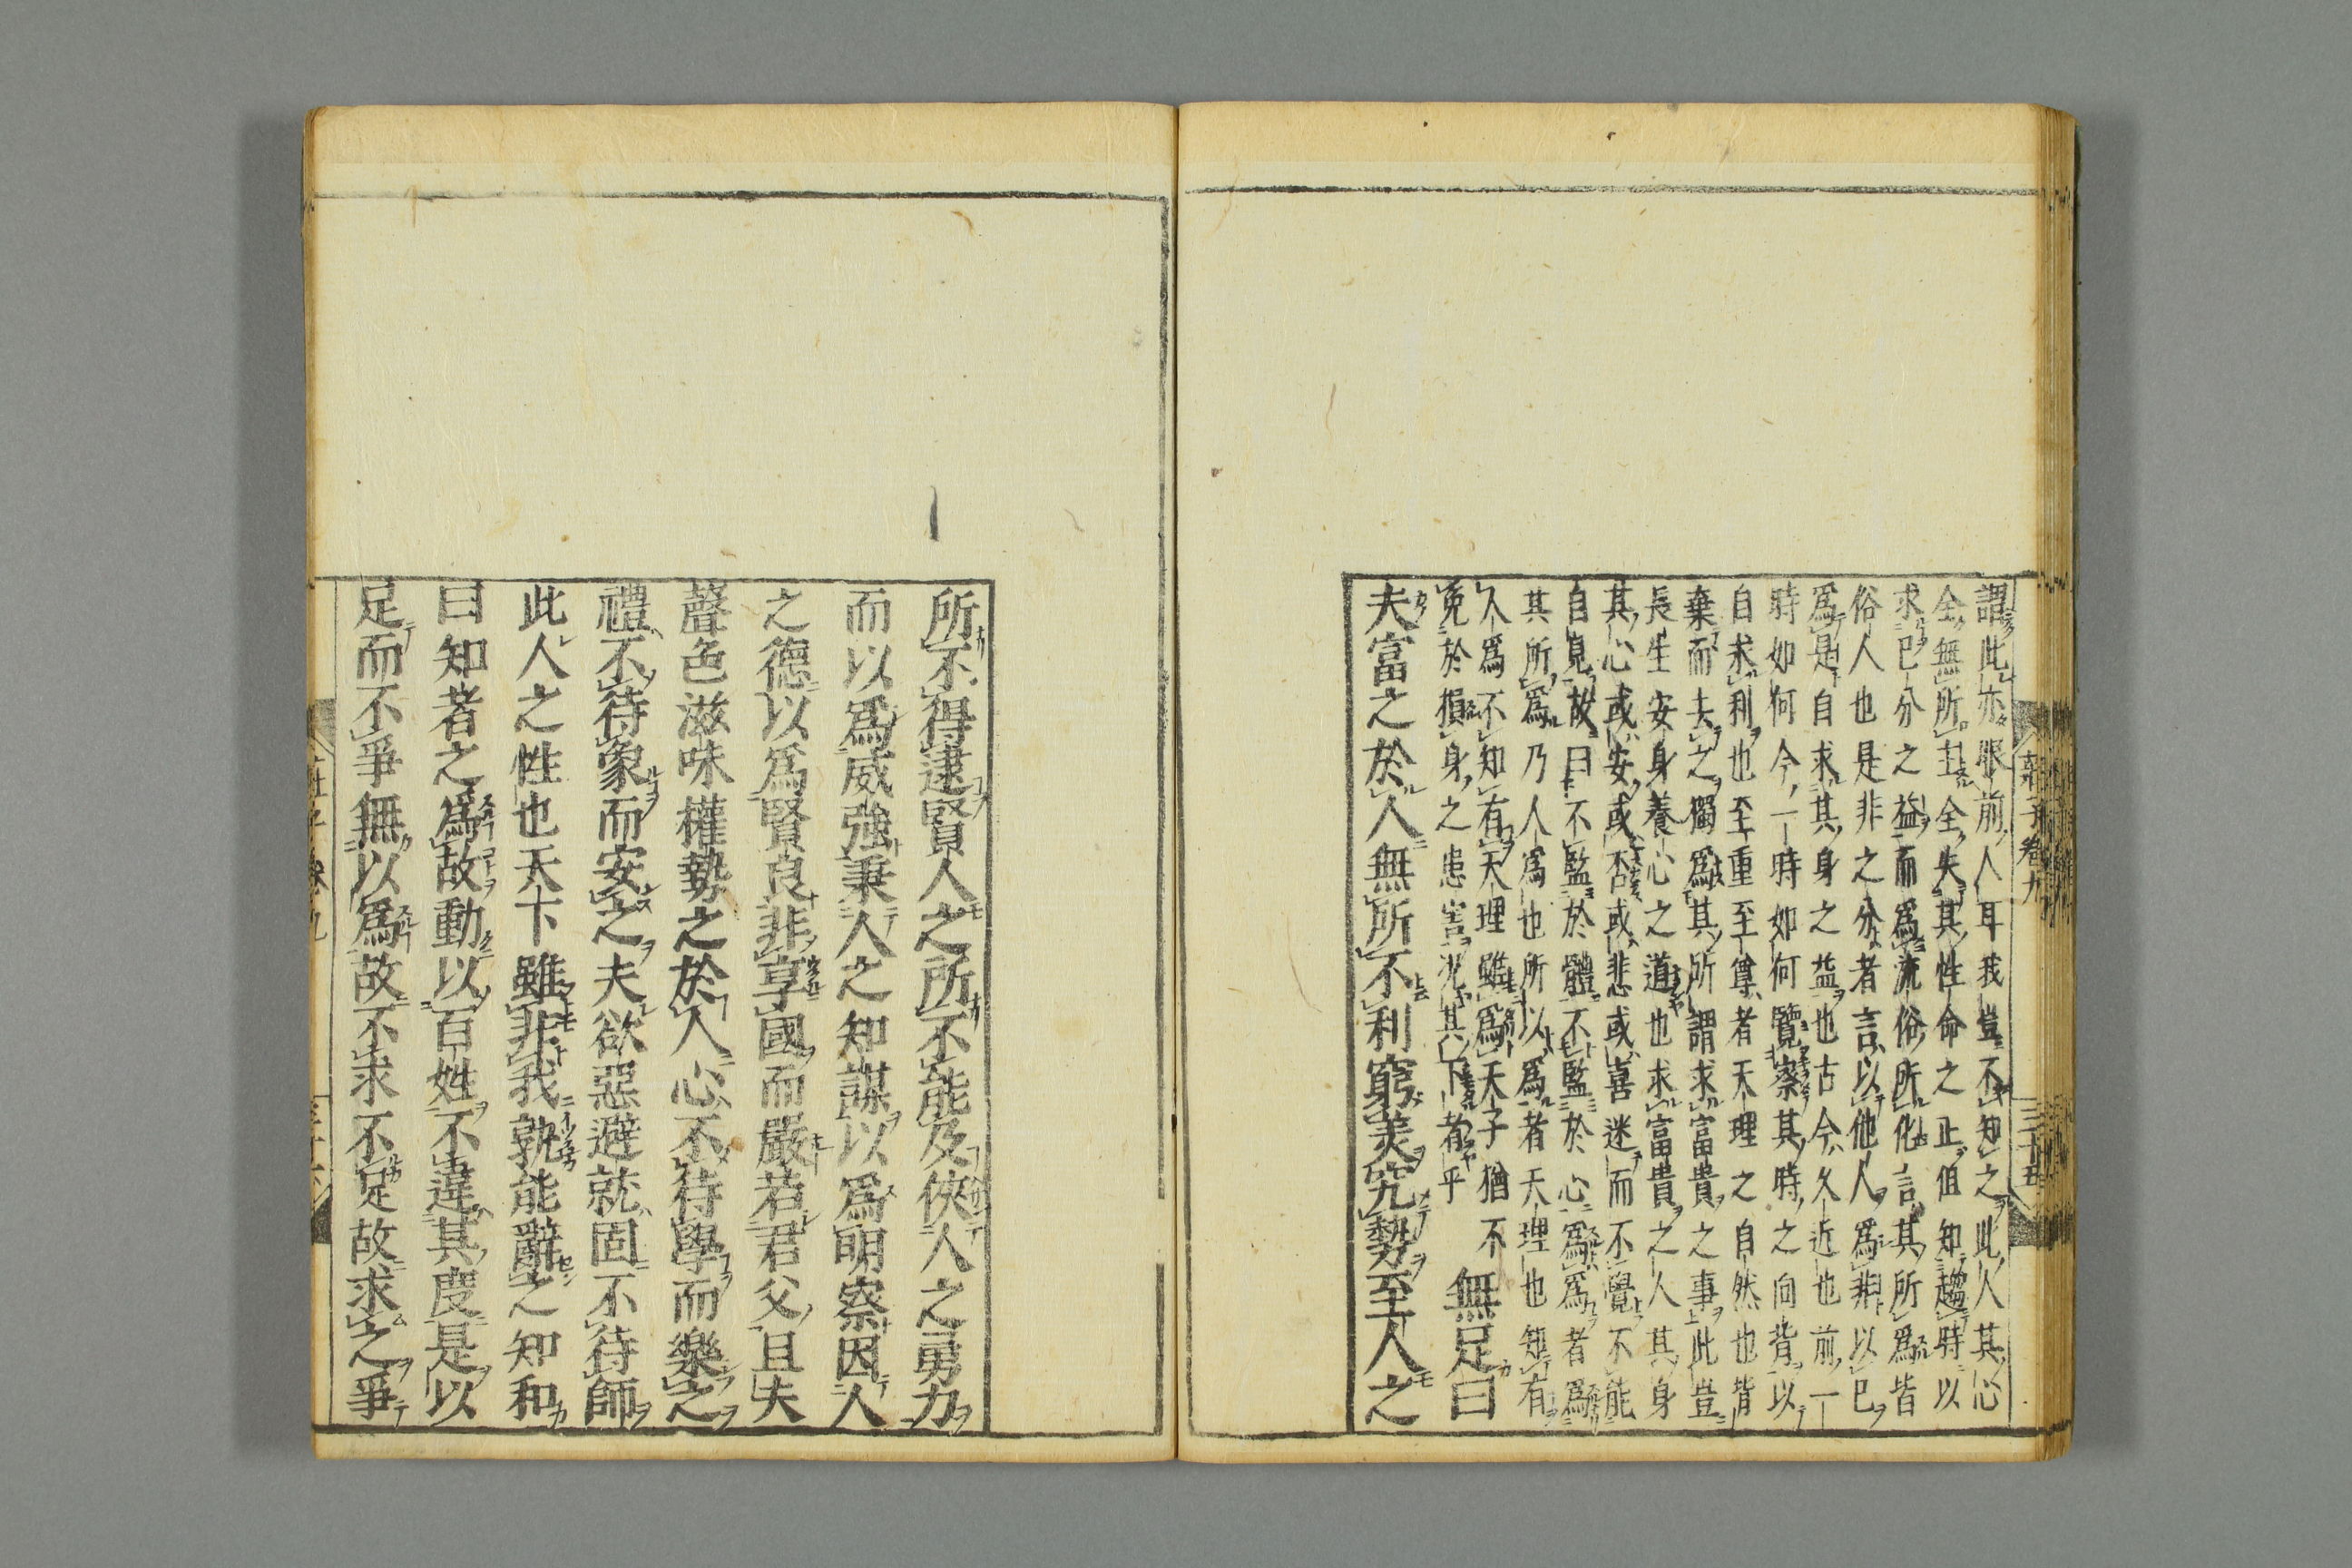 謂此亦眼前人耳我豈不知之此人其心
全無所主全失其性命之正但知趨時以
求己分之益而爲流俗所化言其所爲皆
俗人也是非之分者言以他人爲非以己
爲是自求其身之益也古今久近也前一
時如何今一時如何覽察其時之向背以
自求利也至重至尊者天理之自然也皆
棄而去之獨爲其所謂求富貴之事此豈
長生安身養心之道也求富貴之人其身
其心或安或否或悲或喜迷而不覺不能
自覓故曰不監於體不監於心爲爲者爲
其所爲乃人爲也所以爲者天理也知有
人爲不知有天理雖爲天子猶不
免於損身之患害況其下者乎
無足曰
夫富之於人無所不利窮美究勢至人之
莊子卷九
三十五
所不得逮賢人之所不能及俠人之勇力
而以爲威強秉人之知謀以爲明察因人
之德以爲賢良非享國而嚴若君父且夫
聲色滋味權勢之於人心不待學而樂之
禮不待象而安之夫欲惡避就固不待師
此人之性也天下雖非我孰能辭之知和
曰知者之爲故動以百姓不違其度是以
足而不爭無以爲故不求不足故求之爭